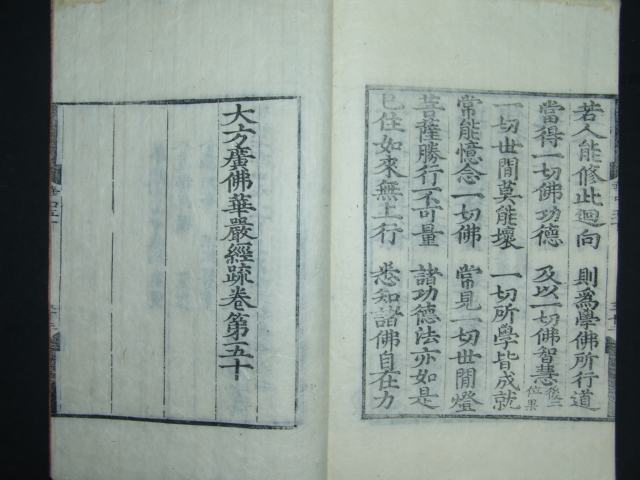 若人能修此迴向　則為學佛所行道
當得一切佛功德　及以一切佛智慧後二位果
一切世間莫能壞　一切所學皆成就
常能憶念一切佛　常見一切世間燈
菩薩勝行不可量　諸功德法亦如是
已住如來無上行　悉知諸佛自在力
大方廣佛華嚴經疏卷第五十